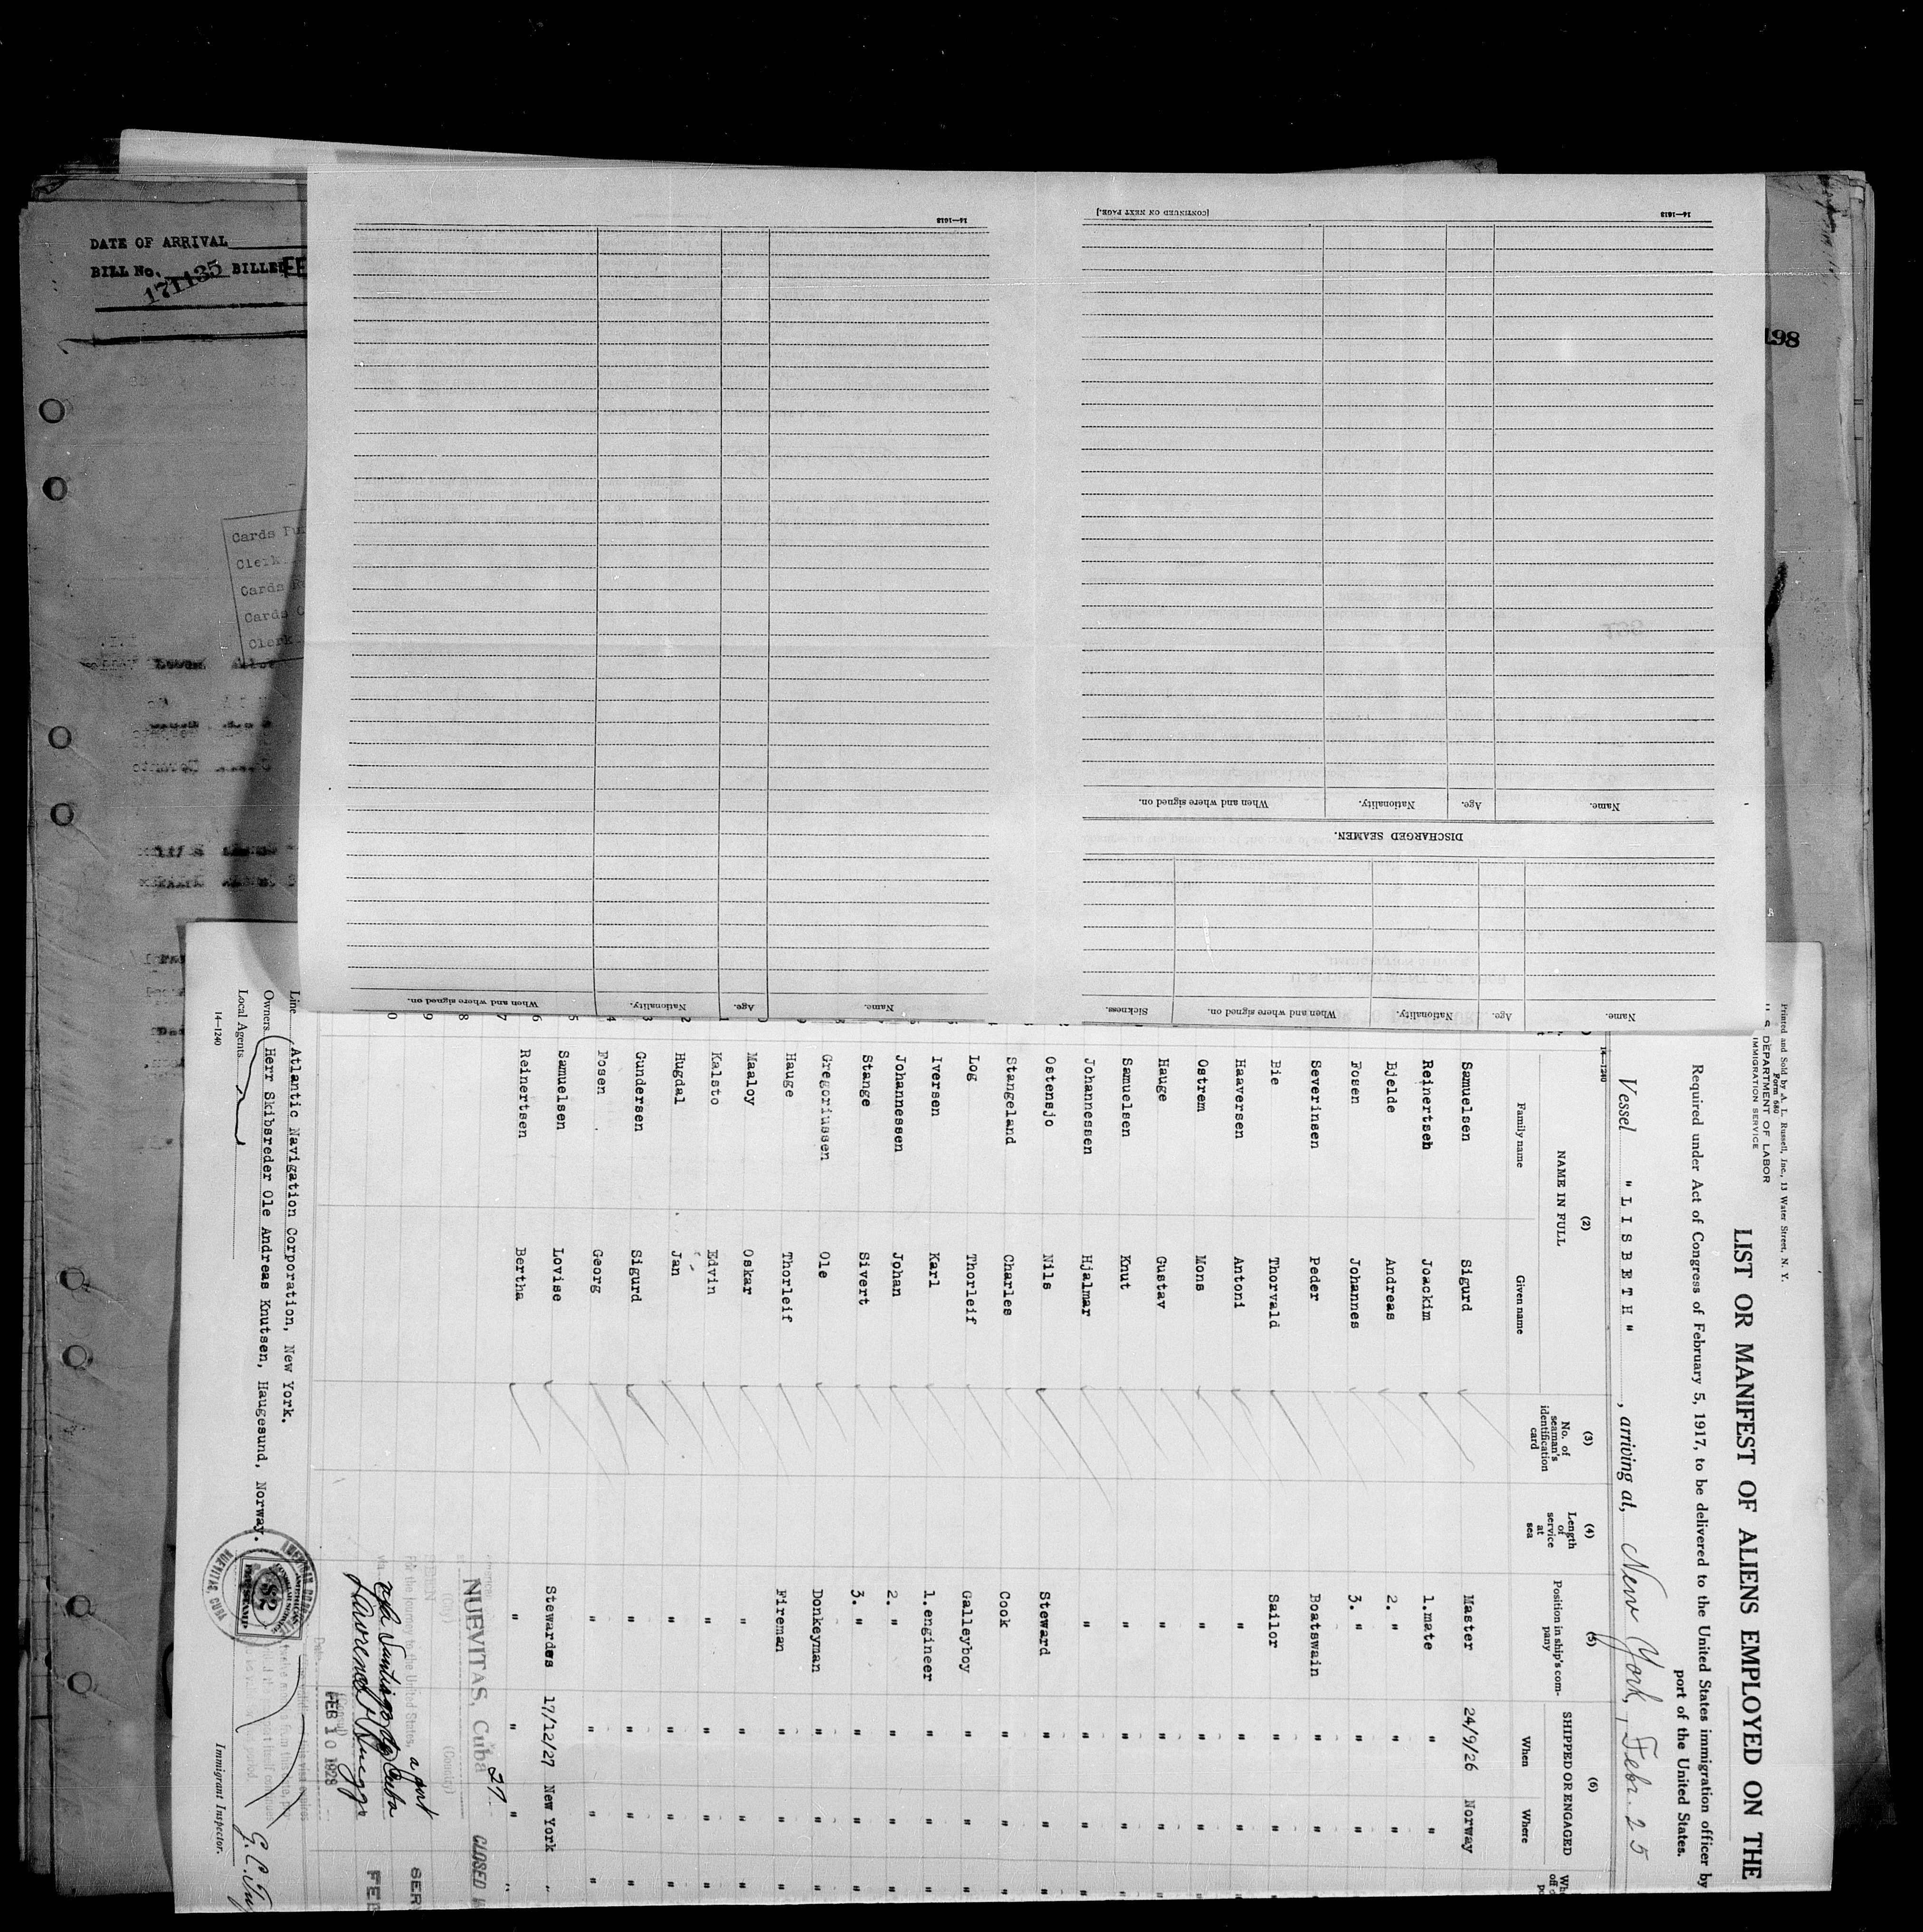 DATE OF ARRIVAL
BILL No. 171135 BILLED FE
198
Cards Fu
Clerk
Cards
Cards
Clerk
14—1613
[CONTINUED ON NEXT PAGE.]
14—1613
Name. Age. Nationality. When and where signed on.
DISCHARGED SEAMEN.
Name. Age. Nationality. When and where signed on. Sickness.
Name. Age. Nationality. When and where signed on.
Printed and Sold by A. L. Russell, Inc., 13 Water Street, N. Y.
Form 680
U. S. DEPARTMENT OF LABOR
IMMIGRATION SERVICE
LIST OR MANIFEST OF ALIENS EMPLOYED ON THE
Required under Act of Congress of February 5, 1917, to be delivered to the United States immigration officer by
port of the United States.
Vessel "LISBETH", arriving at, New York, Febr. 25
14—1240
(2) (3) (4) (5) (6)
NAME IN FULL No. of seaman's identification card Length of service at sea Position in ship's company SHIPPED OR ENGAGED
Family name Given name When Where
Samuelsen Sigurd Master 24/9/26 Norway
Reinertseh Joackim 1.mate " "
Bjelde Andreas 2. " " " "
Fosen Johannes 3. " " " "
Severinsen Peder Boatswain " " "
Bie Thorvald Sailor " " "
Haaversen Antoni " " " "
Ostrem Mons " " " "
Hauge Gustav " " " "
Samuelsen Knut " " " "
Johannessen Hjalmar " " " "
Ostensjo Nils Steward " " "
Stangeland Charles Cook " " "
Log Thorleif Galleyboy " " "
Iversen Karl 1.engineer " " "
Johannessen Johan 2. " " " "
Stange Sivert 3. " " " "
Gregoriussen Ole Donkeyman " " "
Hauge Thorleif Fireman " " "
Maaloy Oskar " " " "
Kalsto Edvin " " " "
Hugdal Jan " " " "
Gundersen Sigurd " " " "
Fosen Georg " " " "
Samuelsen Lovise Stewardes 17/12/27 New York "
Reinertsen Bertha " " " "
NUEVITAS, Cuba 27 CLOSED
(City) (Country)
For the journey to the United States, a port
SER
via Santiago de Cuba
FEB
FEB 10 1928
Line Atlantic Navigation Corporation, New York.
Owners Herr Skibsreder Ole Andreas Knutsen, Haugesund, Norway.
Local Agents
NUEVITAS, CUBA
AMERICAN CONSULAR SERVICE
$2
FEE STAMP
Immigrant Inspector.
14—1240